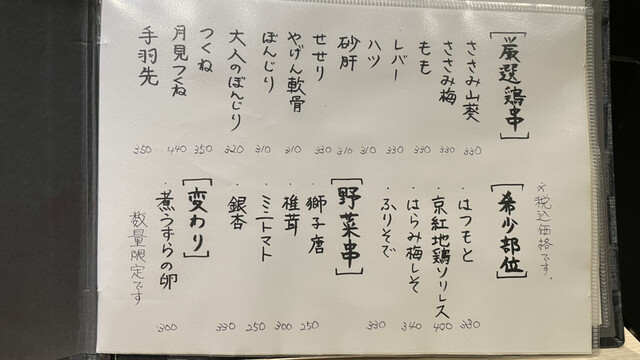 [厳選鶏串]
ささみ山葵 330
ささみ梅 330
もも 330
レバー 330
ハツ 310
砂肝 310
せせり 330
やげん軟骨 310
ぼんじり 310
大人のぼんじり 320
つくね 350
月見つくね 440
手羽先 350
※税込価格です。
[希少部位]
・はつもと 330
・京紅地鶏ソリレス 400
・はらみ梅しそ 340
・ふりそで 330
[野菜串]
・獅子唐 250
・椎茸 300
・ミニトマト 250
・銀杏 330
[変わり]
煮うずらの卵 300
数量限定です